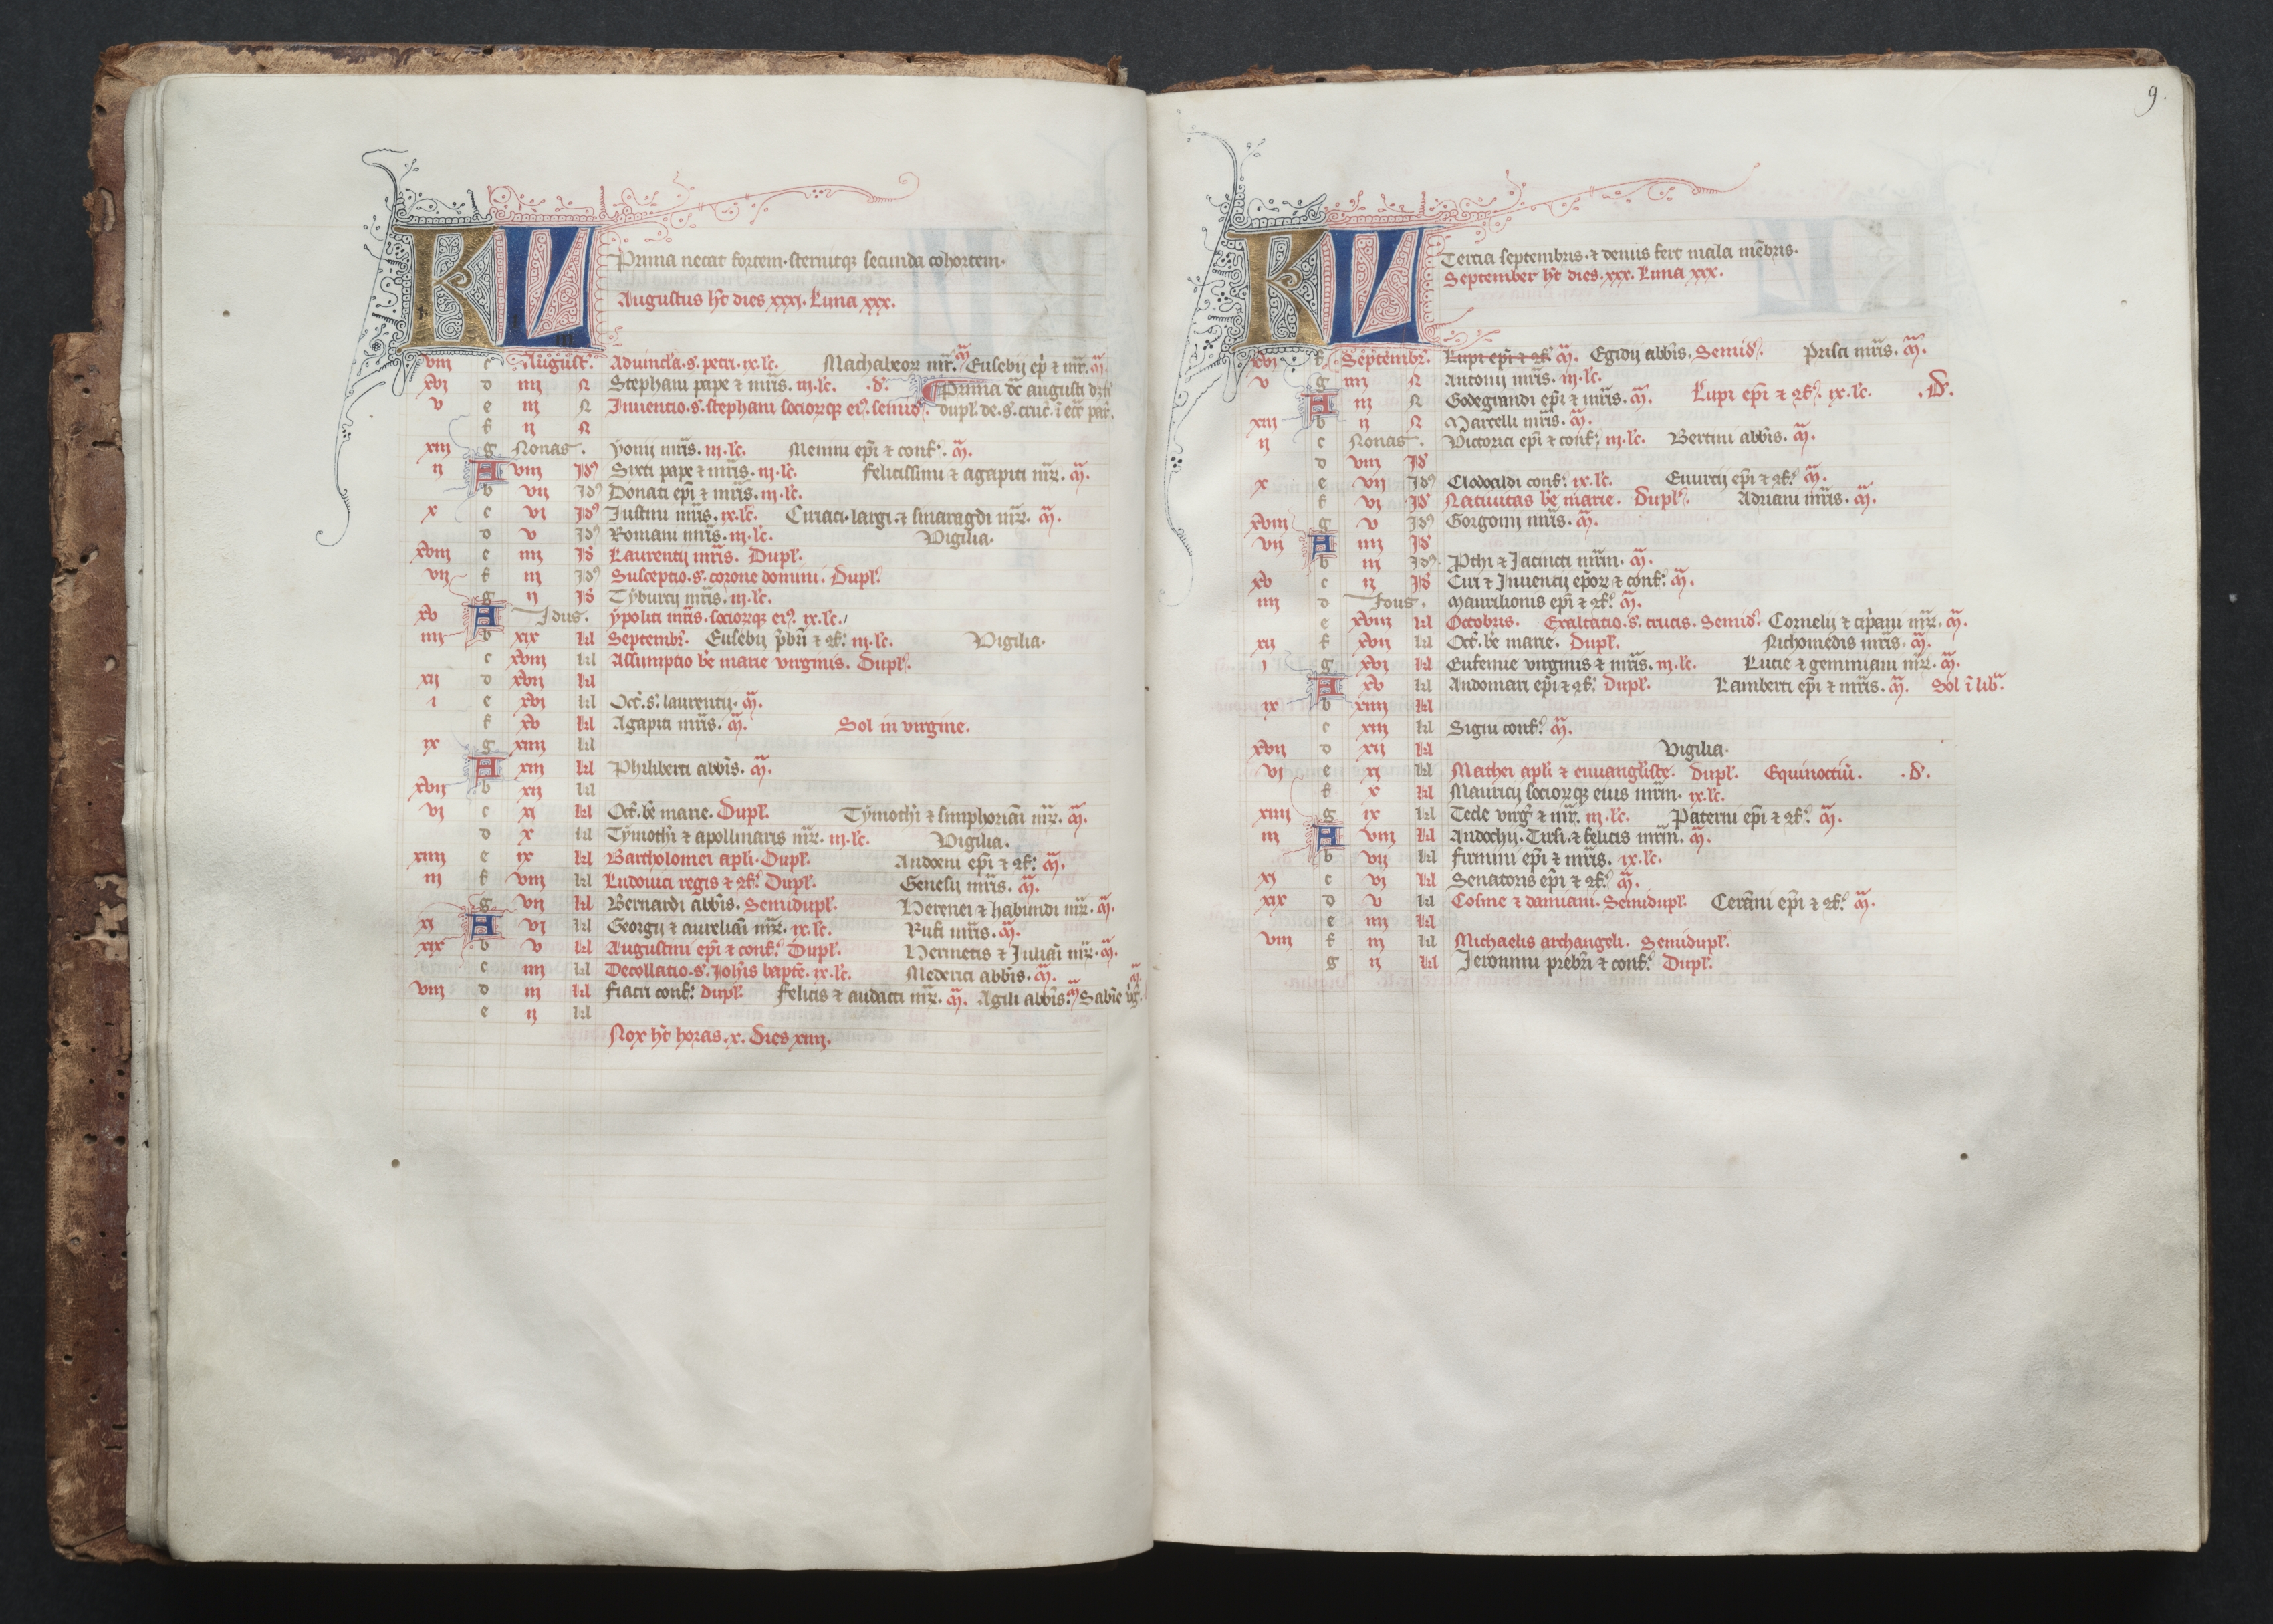 KL Prima necat fortem. sternitq; secunda cohortem.
Augustus hꝫ dies xxxj. Luna xxx.
viij c August'. Aduincla. s. petri. ix. lc. Machabeoꝝ mr̄. m̄. Eusebij ep̄i & mr̄. m̄.
xvj d iiij N Stephani pape & mr̄is. iij. lc. .d'. Prima dĉ augusti
v e iij N Inuentio. s. stephani socioꝝq; ei'. semid'. dupl. de. s. cruc̄. ī ecc̄ par'.
f ij N
xiij g Nonas. yonij mr̄is. iij. lc. Memmi ep̄i & conf'. m̄.
ij A viij Id' Sixti pape & mr̄is. iij. lc. Felicissimi & agapiti mr̄. m̄.
b vij Id' Donati ep̄i & mr̄is. iij. lc.
x c vj Id' Iustini mr̄is. ix. lc. Ciriaci. largi. & smaragdi mr̄. m̄.
d v Id' Romani mr̄is. iij. lc. Vigilia.
xviij e iiij Id' Laurentij mr̄is. Dupl'.
vij f iij Id' Susceptio. s. corone domini. Dupl'.
g ij Id' Tyburcij mr̄is. iij. lc.
xv A Idus. ypoliti mr̄is. socioꝝq; ei'. ix. lc.
iiij b xix kl Septembr'. Eusebij p̄bri & 2f'. iij. lc. Vigilia.
c xviij kl Assumptio bē marie virginis. Dupl'.
xij d xvij kl
i e xvj kl Oct'. s. laurentij. m̄.
f xv kl Agapiti mr̄is. m̄. Sol in virgine.
ix g xiiij kl
A xiij kl Philiberti abb̄is. m̄.
xvij b xij kl
vj c xj kl Oct'. bē marie. Dupl'. Tymothi & simphoriāi mr̄. m̄.
d x kl Tymothi & apollinaris mr̄. iij. lc. Vigilia.
xiiij e ix kl Bartholomei apl'i. Dupl'. Audoeni ep̄i & 2f'. m̄.
iij f viij kl Ludouici regis & 2f'. Dupl'. Genesij mr̄is. m̄.
g vij kl Bernardi abb̄is. Semidupl'. Herenei & habundi mr̄. m̄.
xj A vj kl Georgij & aureliāi mr̄. ix. lc. Rufi mr̄is. m̄.
xix b v kl Augustini ep̄i & conf'. Dupl'. Hermetis & Juliāi mr̄. m̄.
c iiij kl Decollatio. s. Joh̄is bapt̄e. ix. lc. Mederici abb̄is. m̄.
viij d iij kl Fiacri conf'. dupl'. Felicis & audacti mr̄. m̄. Agili abb̄is. m̄ Sabīe v̄g. m̄.
e ij kl
Nox hꝫ horas. x. Dies xiiij.
9.
KL Tercia septembris. & denus fert mala mēbris.
September hꝫ dies. xxx. Luna xxx.
xvj f Septembr'. Lupi ep̄i & 2f'. m̄. Egidij abb̄is. Semid'. Prisci mr̄is. m̄.
v g iiij N Antonij mr̄is. iij. lc.
A iij N Godegrandi ep̄i & mr̄is. m̄. Lupi ep̄i & 2f'. ix. lc. .d'.
xiij b ij N Marcelli mr̄is. m̄.
ij c Nonas. Victorici ep̄i & conf'. iij. lc. Bertini abb̄is. m̄.
d viij Id'
x e vij Id' Clodoaldi conf'. ix. lc. Euurcij ep̄i & 2f'. m̄.
f vj Id' Natiuitas bē marie. Dupl'. Adriani mr̄is. m̄.
xviij g v Id' Gorgonij mr̄is. m̄.
vij A iiij Id'
b iij Id' Pthi & Jacincti mr̄m. m̄.
xv c ij Id' Ciri & Iuuencij ep̄oꝝ & conf'. m̄.
iiij d Idus. Maurilionis ep̄i & 2f'. m̄.
e xviij kl Octobris. Exaltatio. s. crucis. Semid'. Cornelij & cip̄ani mr̄. m̄.
xij f xvij kl Oct'. bē marie. Dupl'. Nichomedis mr̄is. m̄.
i g xvj kl Eufemie virginis & mr̄is. iij. lc. Lucie & geminiani mr̄. m̄.
A xv kl Audomari ep̄i & 2f'. Dupl'. Lamberti ep̄i & mr̄is. m̄. Sol ī lib̄.
ix b xiiij kl
c xiij kl Signi conf'. m̄.
xvij d xij kl Vigilia.
vj e xj kl Mathei apl'i & euuangl'iste. dupl'. Equinoctiū. .d'.
f x kl Mauricij socioꝝq; eius mr̄m. ix. lc.
xiiij g ix kl Tecle virg' & mr̄. iij. lc. Paterni ep̄i & 2f'. m̄.
iij A viij kl Andochij. Tirsi. & felicis mr̄m. m̄.
b vij kl Firmini ep̄i & mr̄is. ix. lc.
xj c vj kl Senatoris ep̄i & 2f'. m̄.
xix d v kl Cosme & damiani. Semidupl'. Cerāni ep̄i & 2f'. m̄.
e iiij kl
viij f iij kl Michaelis archangeli. Semidupl'.
g ij kl Jeronimi presb̄ri & conf'. Dupl'.